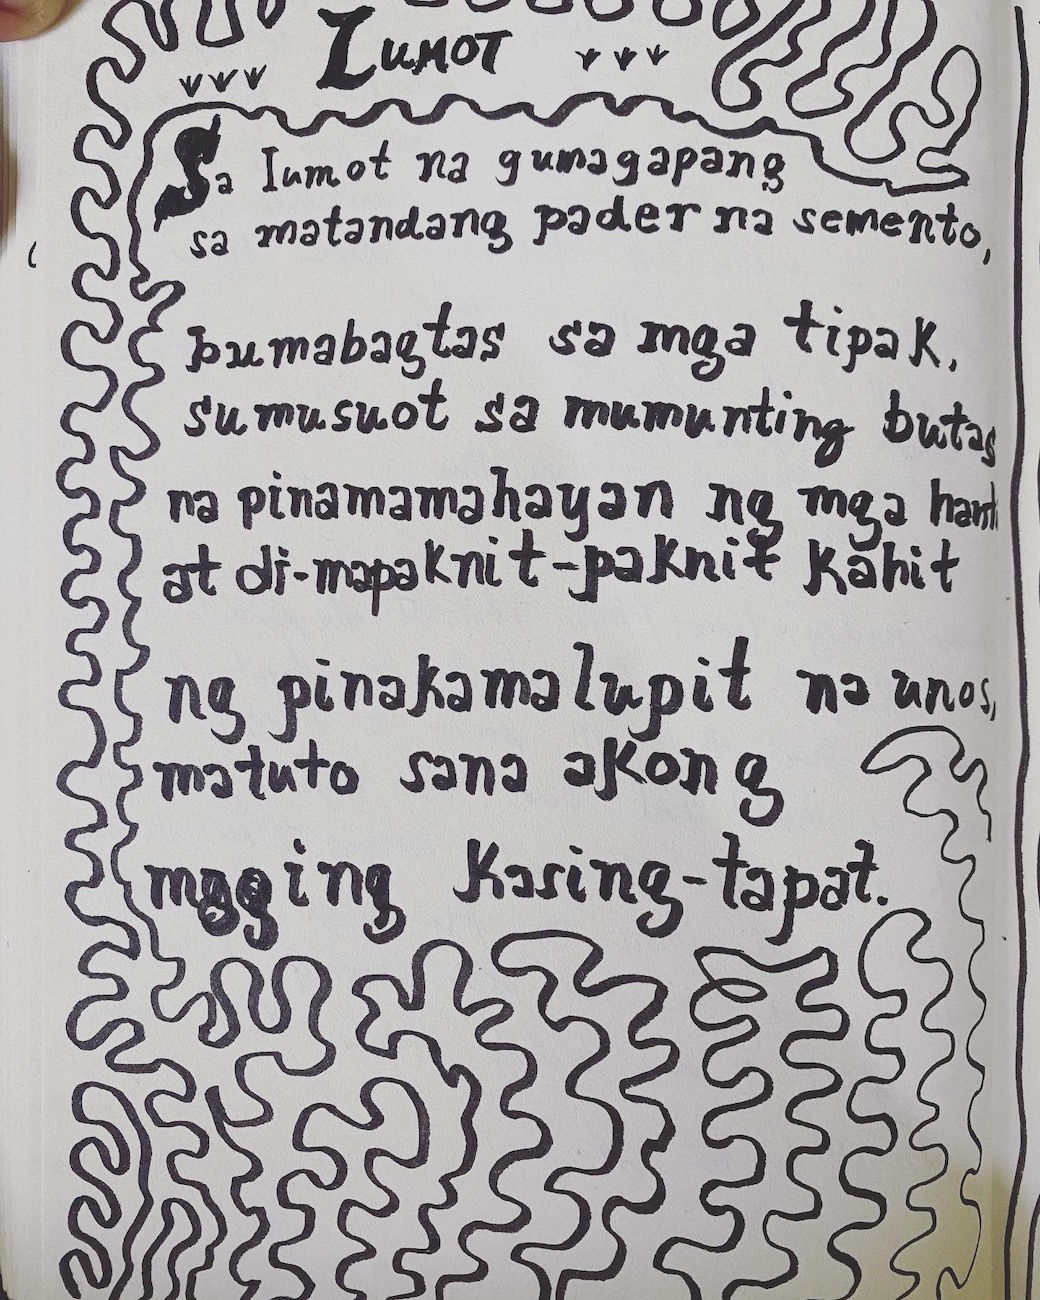 Lumot
Sa lumot na gumagapang
sa matandang pader na semento,
bumabagtas sa mga tipak,
sumusuot sa mumunting butas
na pinamamahayan ng mga hanti
at di-mapaknit-paknit kahit
ng pinakamalupit na unos,
matuto sana akong
maging kasing-tapat.